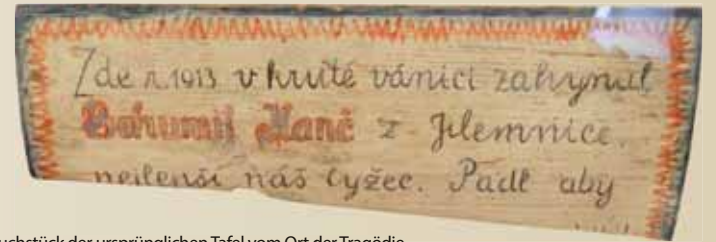 Zde r. 1913 v kruté vánici zahynul
Bohumil Hanč z Jilemnice,
nejlepší náš lyžec. Padl aby
uchstück der ursprünglichen Tafel vom Ort der Tragödie